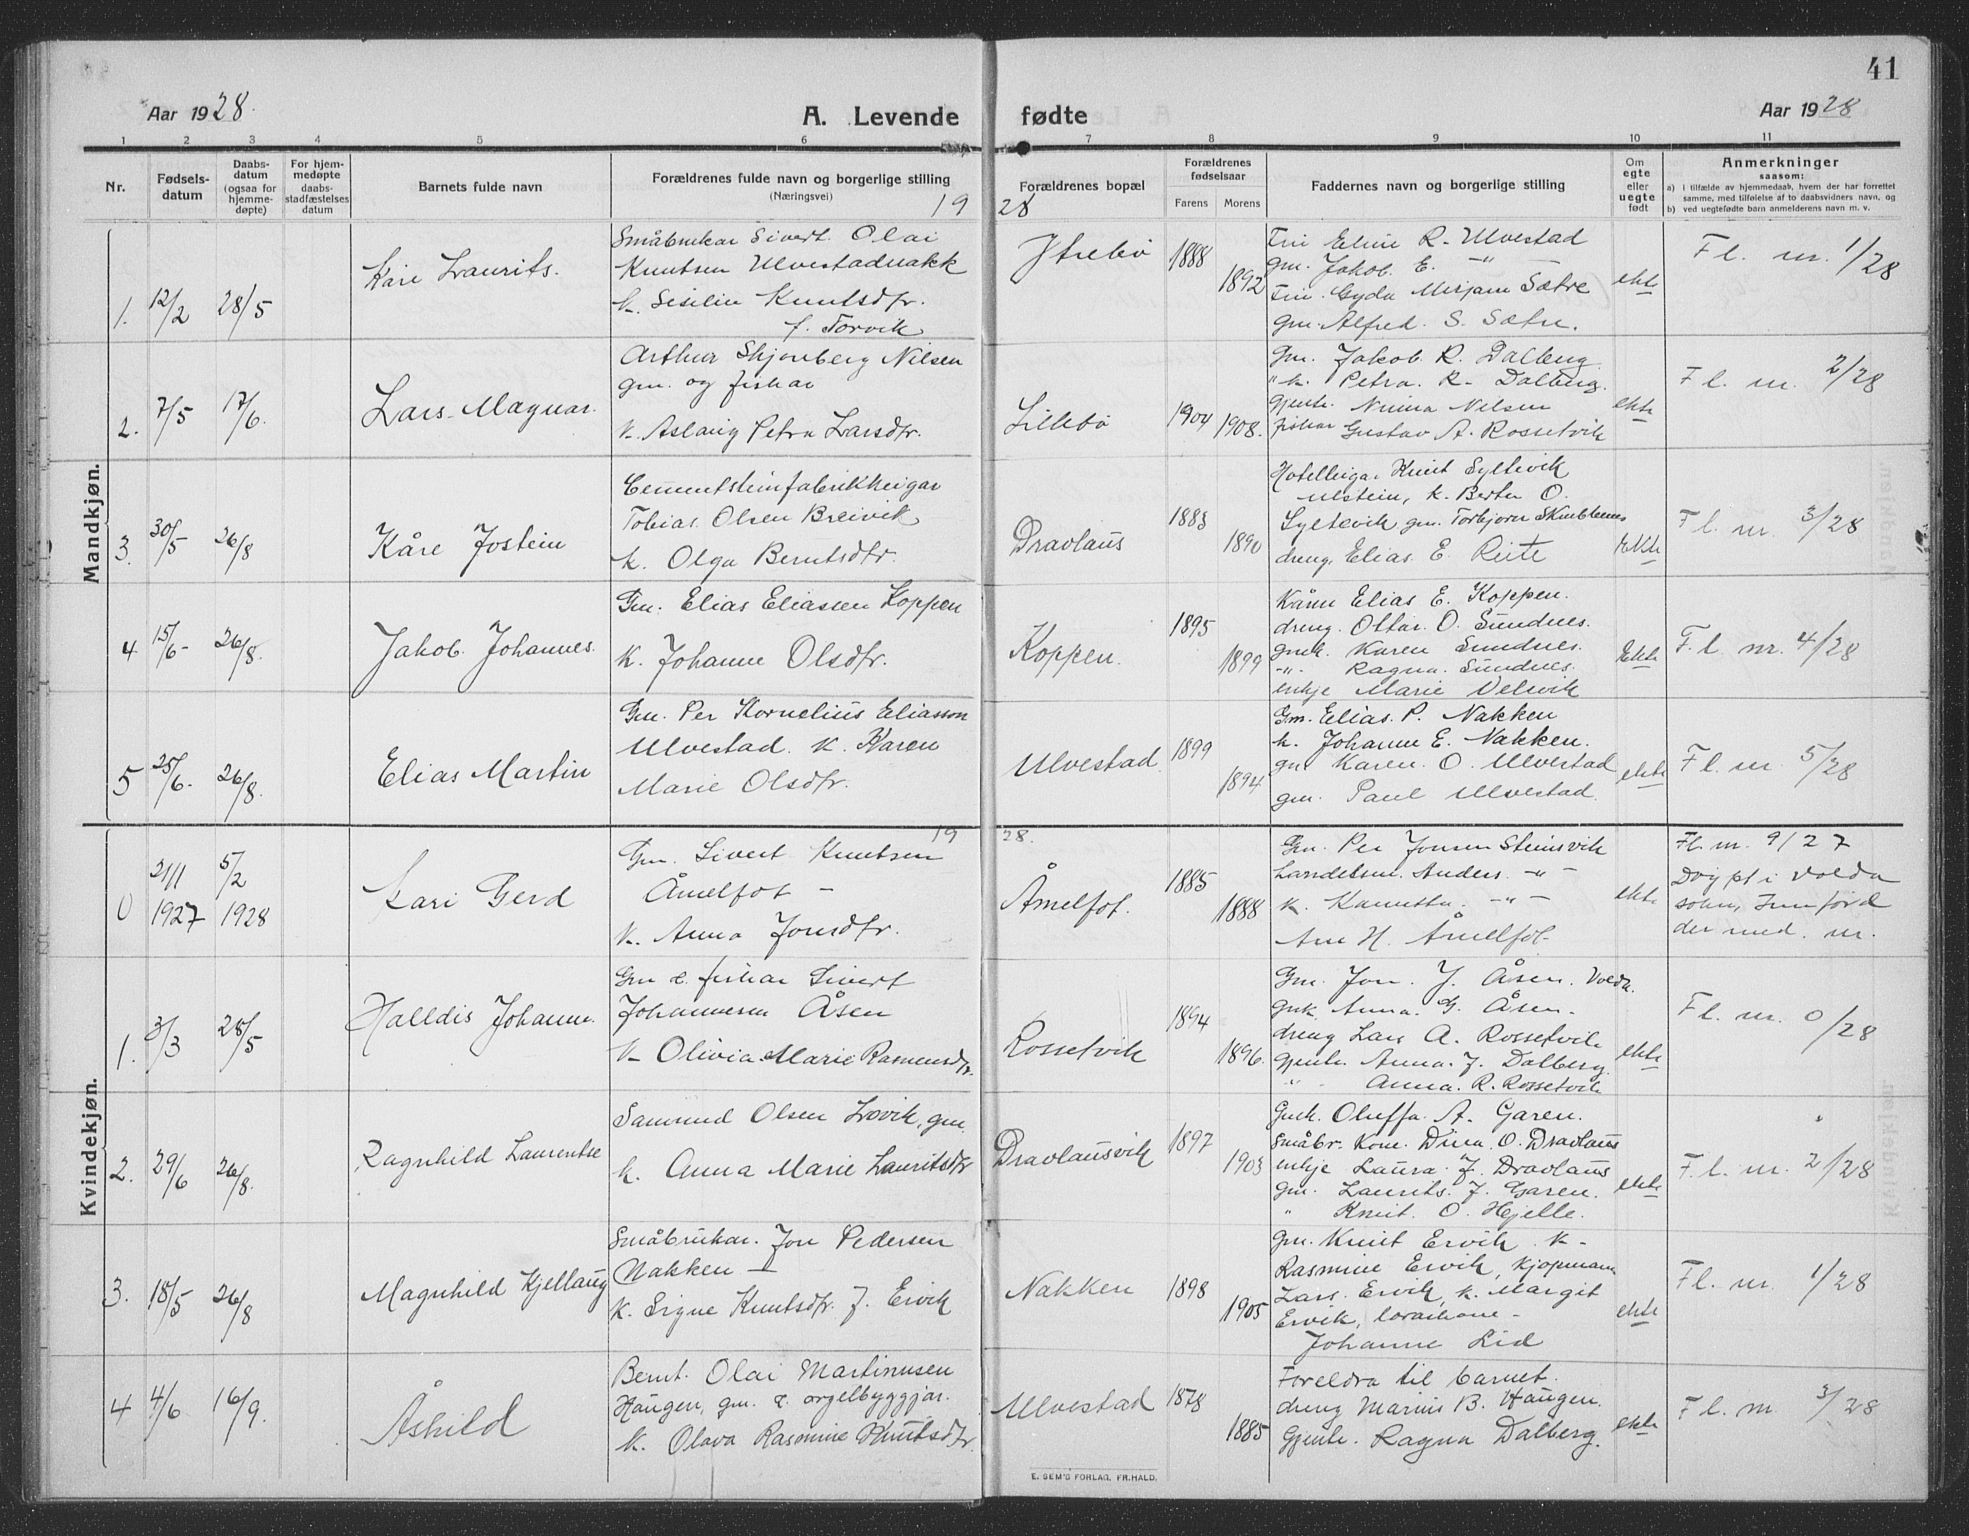 41
Aar 1928.
A. Levende
fødte
Aar 1928
1 2 3 4 5 6 7 8 9 10 11
Nr.
Fødsels-
datum
Daabs-
datum
(ogsaa for
hjemme-
døpte)
For hjem-
medøpte
daabs-
stadfæstelses
datum
Barnets fulde navn
Forældrenes fulde navn og borgerlige stilling
(Næringsvei)
19
28
Forældrenes bopæl
Forældrenes
fødselsaar
Farens Morens
Faddernes navn og borgerlige stilling
Om
egte
eller
uegte
født
Anmerkninger
saasom:
a) i tilfælde av hjemmedaab, hvem der har forrettet
samme, med tilføielse af to daabsvidners navn, og
b) ved uegtefødte barn anmelderens navn m. v.
Mandkjøn.
1. 12/2 28/5
Kåre Laurits.
Småbrukar Sivert Olai
Knutsen Ulvestadnakk
k. Sisilie Knutsdtr.
f. Torvik
Ytrebø
1888
1892
Fru Eline R. Ulvestad
gm. Jakob E. -"-
Fru. Gyda Mirjam Sætre
gm. Alfred S. Sætre.
ekte
Fl. nr. 1/28
2. 7/5 17/6.
Lars Magnar.
Arthur Skjonberg Nilsen
gm. og fiskar
k. Aslaug Petra Larsdtr.
Lillebø
1904
1908.
Gm. Jakob R. Dalberg
"k. Petra. R. Dalberg.
gjente. Ninna Nilsen
fiskar Gustav A. Rossetvik
ekte
Fl. nr. 2/28
3. 30/5 26/8
Kåre Jostein
Cementsteinfabrikkeigar
Tobias Olsen Breivik
k. Olga Berntsdtr.
Dravlaus
1883
1890
Hotelleigar Knut Syltevik
Ulstein, k. Berte O.
Syltevik gm. Torbjørn Skublenes
dreng, Elias E. Reite
Ekte
Fl. nr. 3/28
4 15/6- 26/8.
Jakob Johannes.
Gm. Elias Eliassen Koppen
k. Johanne Olsdtr.
Koppen.
1895
1899
Kårm Elias E. Koppen.
dreng. Ottar. O. Sundnes.
gmk. Karen Sundnes.
-"- Ragna. Sundnes.
enkje Marie Velsvik
Ekte
Fl. nr. 4/28
5 25/6. 26/8.
Elias Martin
Gm. Per Kornelius Eliasson
Ulvestad. k. Karen
Marie Olsdtr.
Ulvestad
1899
1894
Gm. Elias. P. Nakken
k. Johanne E. Nakken.
gm Karen. O. Ulvestad
gm. Paul Ulvestad.
ekte
Fl. nr. 5/28
Kvindekjøn.
19
28.
0 21/11 1927 5/2 1928
Kari Gerd
Gm. Sivert Knutsen
Åmelfot -
k. Anna Jonsdtr.
Åmelfot.
1885
1888
Gm. Per Jonsen Steinsvik
Landetsm. Anders -"-
k. -"-
Ane H. Åmelfot
ekte
Fl. nr. 9/27
Døypt i Volda
sokn, Innførd
der med. nr.
1. 3/3 28/5
Halldis Johanne.
Gm & fiskar Sivert
Johannesen Åsen
k. Olivia Marie Rasmusdtr.
Rossetvik
1894
1896.
Gm. Jon. J. Åsen. Volda.
Gmk. Anna. G. Åsen.
dreng Lars A. Rossetvik
Gjente. Anna. J. Dalberg.
" Anna. R. Rossetvik
ekte
Fl. nr. 0/28
2. 29/6 26/8.
Ragnhild Laurentse
Samund Olsen Løvik, gm.
k. Anna Marie Lauritsdtr
Dravlausvik
1897
1903
Gmk. Oluffa. A. Garen.
Småbr. Kone. Dina. O. Dravlaus
enkje Laura. J. Dravlaus
gm. Laurits. J. Garen.
" Knut. O. Hjelle.
ekte
Fl. nr. 2/28
3. 18/5 26/8
Magnhild Kjellaug
Småbrukar. Jon Pedersen
Nakken -
k. Signe Knutsdtr. f. Ervik
Nakken
1898
1905
Gm. Knut Ervik k-
Rasmine Ervik, kjøpmann
Lars Ervik, k. Margit
Ervik, lærarkone -
Johanne Lid
ekte
Fl. nr. 1/28
4 4/6 16/9.
Åshild
Bernt. Olai Martinusen
Haugen, gm. & orgelbyggjar.
k. Olava Rasmine Knutsdtr.
Ulvestad
1878
1885
Foreldra til barnet.
dreng Marius B. Haugen.
Gjente. Ragna Dalberg.
ekte
Fl. nr 3/28
E. SEM'S FORLAG, FR.HALD.